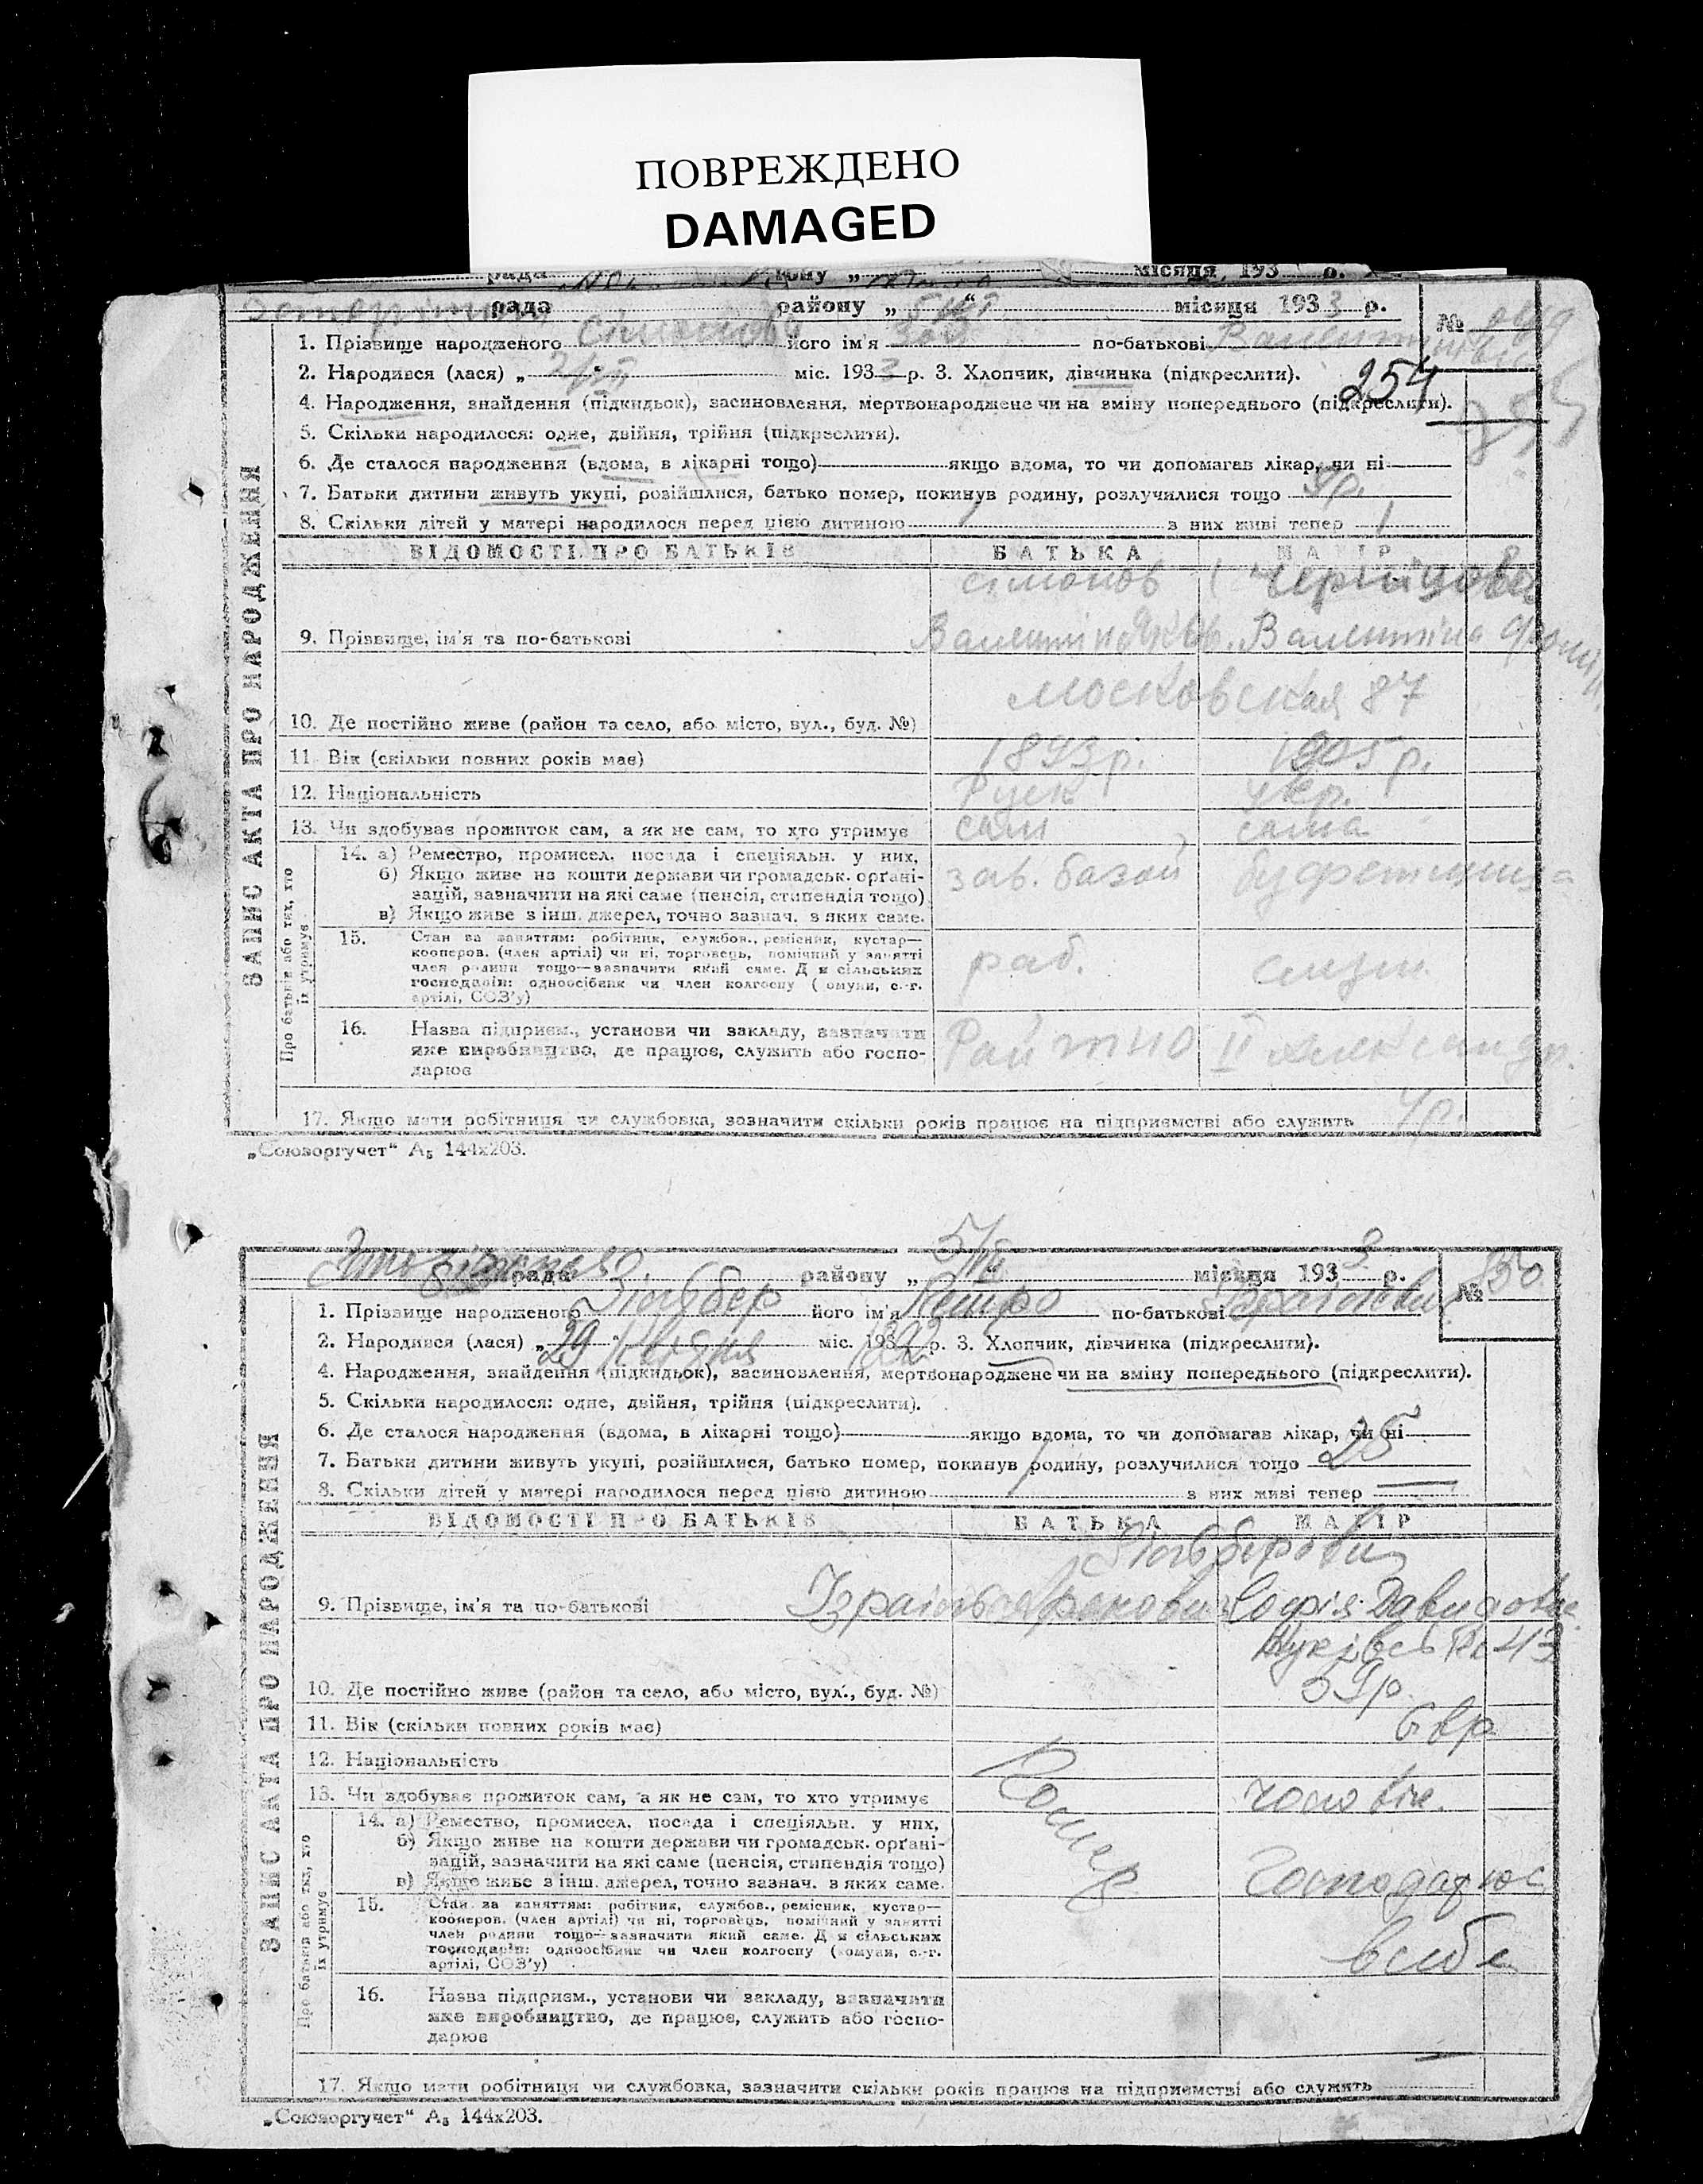 ПОВРЕЖДЕНО
DAMAGED
рада району „ місяця, 193 р.
рада району „ 5/VI “ місяця 1933 р.
№
1. Прізвище народженого його ім'я Зоя по-батькові
2. Народився (лася) „ міс. 1933 р. 3. Хлопчик, дівчинка (підкреслити). 254
4. Народження, знайдення (підкидьок), засиновлення, мертвонароджене чи на зміну попереднього (підкреслити).
5. Скільки народилося: одне, двійня, трійня (підкреслити).
6. Де сталося народження (вдома, в лікарні тощо) якщо вдома, то чи допомагав лікар, чи ні
7. Батьки дитини живуть укупі, розійшлися, батько помер, покинув родину, розлучилися тощо
8. Скільки дітей у матері народилося перед цією дитиною 1 з них живі тепер 1
ЗАПИС АКТА ПРО НАРОДЖЕННЯ
ВІДОМОСТІ ПРО БАТЬКІВ БАТЬКА МАТІР
Сімонов
9. Прізвище, ім'я та по-батькові Валентіна
Московская 87
10. Де постійно живе (район та село, або місто, вул., буд. №)
11. Вік (скільки повних років має) 1893р. 1905р.
12. Національність Руск укр.
13. Чи здобуває прожиток сам, а як не сам, то хто утримує сам сама
Про батьків або тих, хто їх утримує
14. а) Ремество, промисел, посада і спеціяльн. у них,
б) Якщо живе на кошти держави чи громадськ. органі- зав. базой
зацій, зазначити на які саме (пенсія, стипендія тощо)
в) Якщо живе з інш. джерел, точно зазнач. з яких саме.
15. Стан за заняттям: робітник, службов., ремісник, кустар—
кооперов. (член артілі) чи ні, торговець, помічний у занятті
член родини тощо—зазначити який саме. Для сільських раб.
господарів: одноосібник чи член колгоспу (комуни, с.-г.
артілі, СОЗ'у)
16. Назва підприєм., установи чи закладу, зазначити
яке виробництво, де працює, служить або госпо-
дарює
17. Якщо мати робітниця чи службовка, зазначити скільки років працює на підприємстві або служить 4р.
„Союзоргучет“ А₅ 144х203.
рада району „ 5/VI “ місяця 1933 р.
№ 850
1. Прізвище народженого Зільбер його ім'я Петро по-батькові
2. Народився (лася) „ 29 “ міс. 1932 р. 3. Хлопчик, дівчинка (підкреслити).
4. Народження, знайдення (підкидьок), засиновлення, мертвонароджене чи на зміну попереднього (підкреслити).
5. Скільки народилося: одне, двійня, трійня (підкреслити).
6. Де сталося народження (вдома, в лікарні тощо) якщо вдома, то чи допомагав лікар, чи ні
7. Батьки дитини живуть укупі, розійшлися, батько помер, покинув родину, розлучилися тощо 25
8. Скільки дітей у матері народилося перед цією дитиною 1 з них живі тепер
ЗАПИС АКТА ПРО НАРОДЖЕННЯ
ВІДОМОСТІ ПРО БАТЬКІВ БАТЬКА МАТІР
9. Прізвище, ім'я та по-батькові Софія Давидовна
43
10. Де постійно живе (район та село, або місто, вул., буд. №)
11. Вік (скільки повних років має)
Євр
12. Національність
Помер
13. Чи здобуває прожиток сам, а як не сам, то хто утримує
Про батьків або тих, хто їх утримує
14. а) Ремество, промисел, посада і спеціяльн. у них,
б) Якщо живе на кошти держави чи громадськ. органі-
зацій, зазначити на які саме (пенсія, стипендія тощо)
в) Якщо живе з інш. джерел, точно зазнач. з яких саме. Господарює
15. Стан за заняттям: робітник, службов., ремісник, кустар—
кооперов. (член артілі) чи ні, торговець, помічний у занятті
член родини тощо—зазначити який саме. Для сільських
господарів: одноосібник чи член колгоспу (комуни, с.-г.
артілі, СОЗ'у)
16. Назва підприєм., установи чи закладу, зазначити
яке виробництво, де працює, служить або госпо-
дарює
17. Якщо мати робітниця чи службовка, зазначити скільки років працює на підприємстві або служить
„Союзоргучет“ А₅ 144х203.